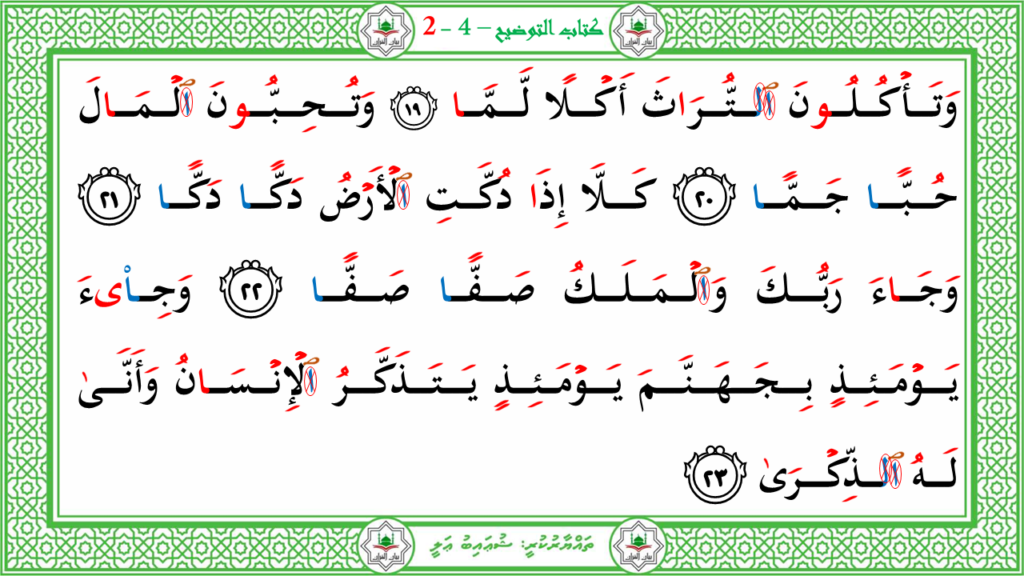 كتاب التوضيح – 4 - 2
وَتَأْكُلُونَ ٱلتُّرَاثَ أَكْلًا لَّمًّا ١٩ وَتُحِبُّونَ ٱلْمَالَ
حُبًّا جَمًّا ٢٠ كَلَّا إِذَا دُكَّتِ ٱلْأَرْضُ دَكًّا دَكًّا ٢١
وَجَاءَ رَبُّكَ وَٱلْمَلَكُ صَفًّا صَفًّا ٢٢ وَجِا۟ىءَ
يَوْمَئِذٍ بِجَهَنَّمَ يَوْمَئِذٍ يَتَذَكَّرُ ٱلْإِنْسَانُ وَأَنَّىٰ
لَهُ ٱلذِّكْرَىٰ ٢٣
ތައްޔާރުކުރީ: ޝުޢައިބު ޢަލީ